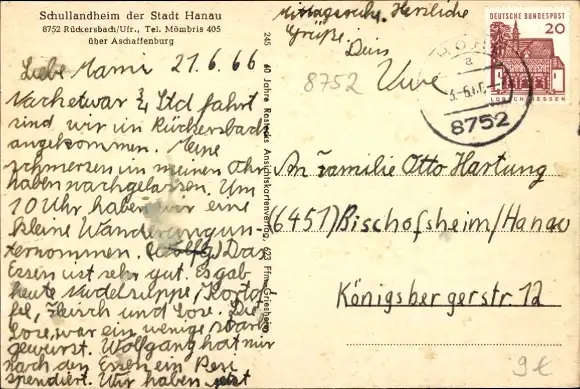 Schullandheim der Stadt Hanau
8752 Rückersbach/Ufr., Tel. Mömbris 405
über Aschaffenburg
Liebe Mami 21.6.66
Nach etwar ¾ Std fahrt
sind wir in Rückersbach
angekommen. Meine
schmerzen im meinen Ohr
haben nachgelassen. Um
10 Uhr haben wir eine
kleine Wanderung un-
ternommen. (Wolfg) Das
Essen ist sehr gut. Es gab
heute Nudelsuppe, Kartof-
fel, Fleisch und Sose. Die
Sose, war ein wenig
gewürst. Wolfgang hat mir
nach den Essen ein
spendiert. Wir haben jetst
Mittagsruhe. Herzliche
Grüße.
Dein
Uwe
8752
245 60 Jahre Ansichtskartenverlag, 623 Ffm.-Griesheim
DEUTSCHE BUNDESPOST
20
LORSCH/HESSEN
a
8752
An Familie Otto Hartung
(6451) Bischofsheim/Hanau
Königsbergerstr 12
9€